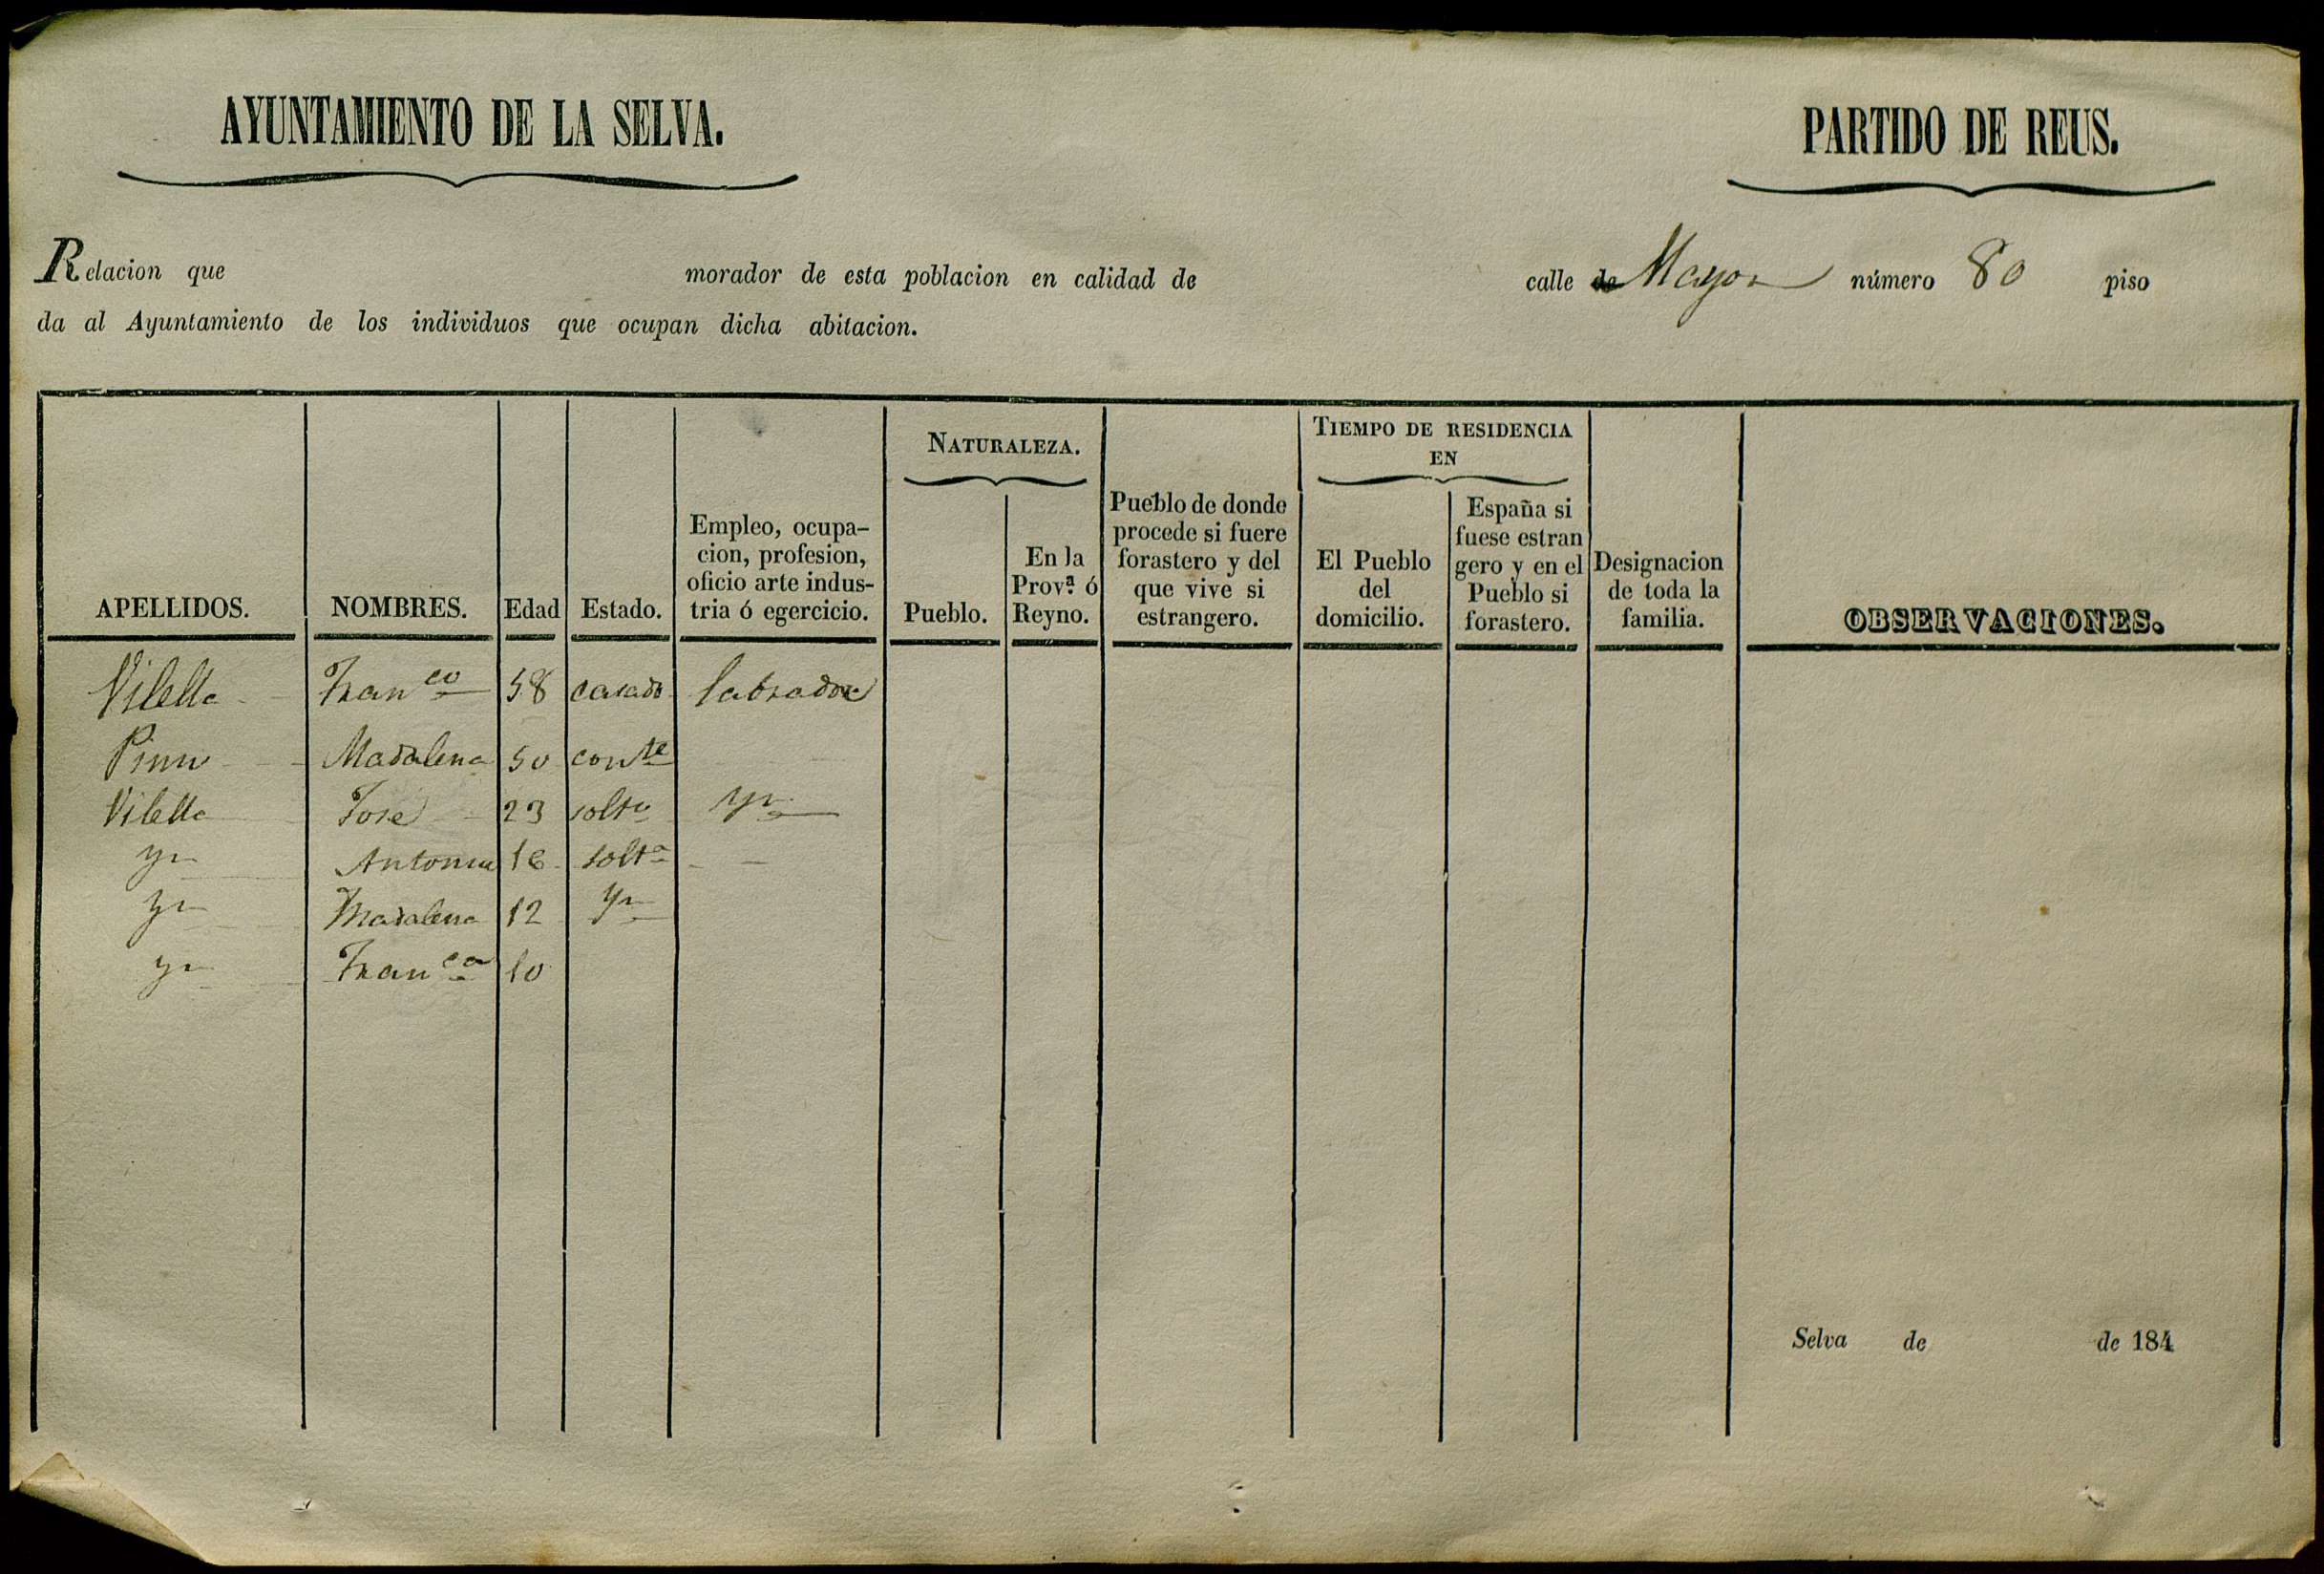 AYUNTAMIENTO DE LA SELVA.
PARTIDO DE REUS.
Relacion que morador de esta poblacion en calidad de calle de Mayor número 80 piso
da al Ayuntamiento de los individuos que ocupan dicha abitacion.
APELLIDOS.
NOMBRES.
Edad
Estado.
Empleo, ocupa-
cion, profesion,
oficio arte indus-
tria ó egercicio.
NATURALEZA.
Pueblo.
En la
Provª ó
Reyno.
Pueblo de donde
procede si fuere
forastero y del
que vive si
estrangero.
TIEMPO DE RESIDENCIA
EN
El Pueblo
del
domicilio.
España si
fuese estran
gero y en el
Pueblo si
forastero.
Designacion
de toda la
familia.
OBSERVACIONES.
Vilella Franco 58 casado labrador
Madalena 50 conte
Vilella José 23 solto yn
yn Antonia 16 solta
yn Madalena 12 yn
yn Franca 10
Selva de de 184